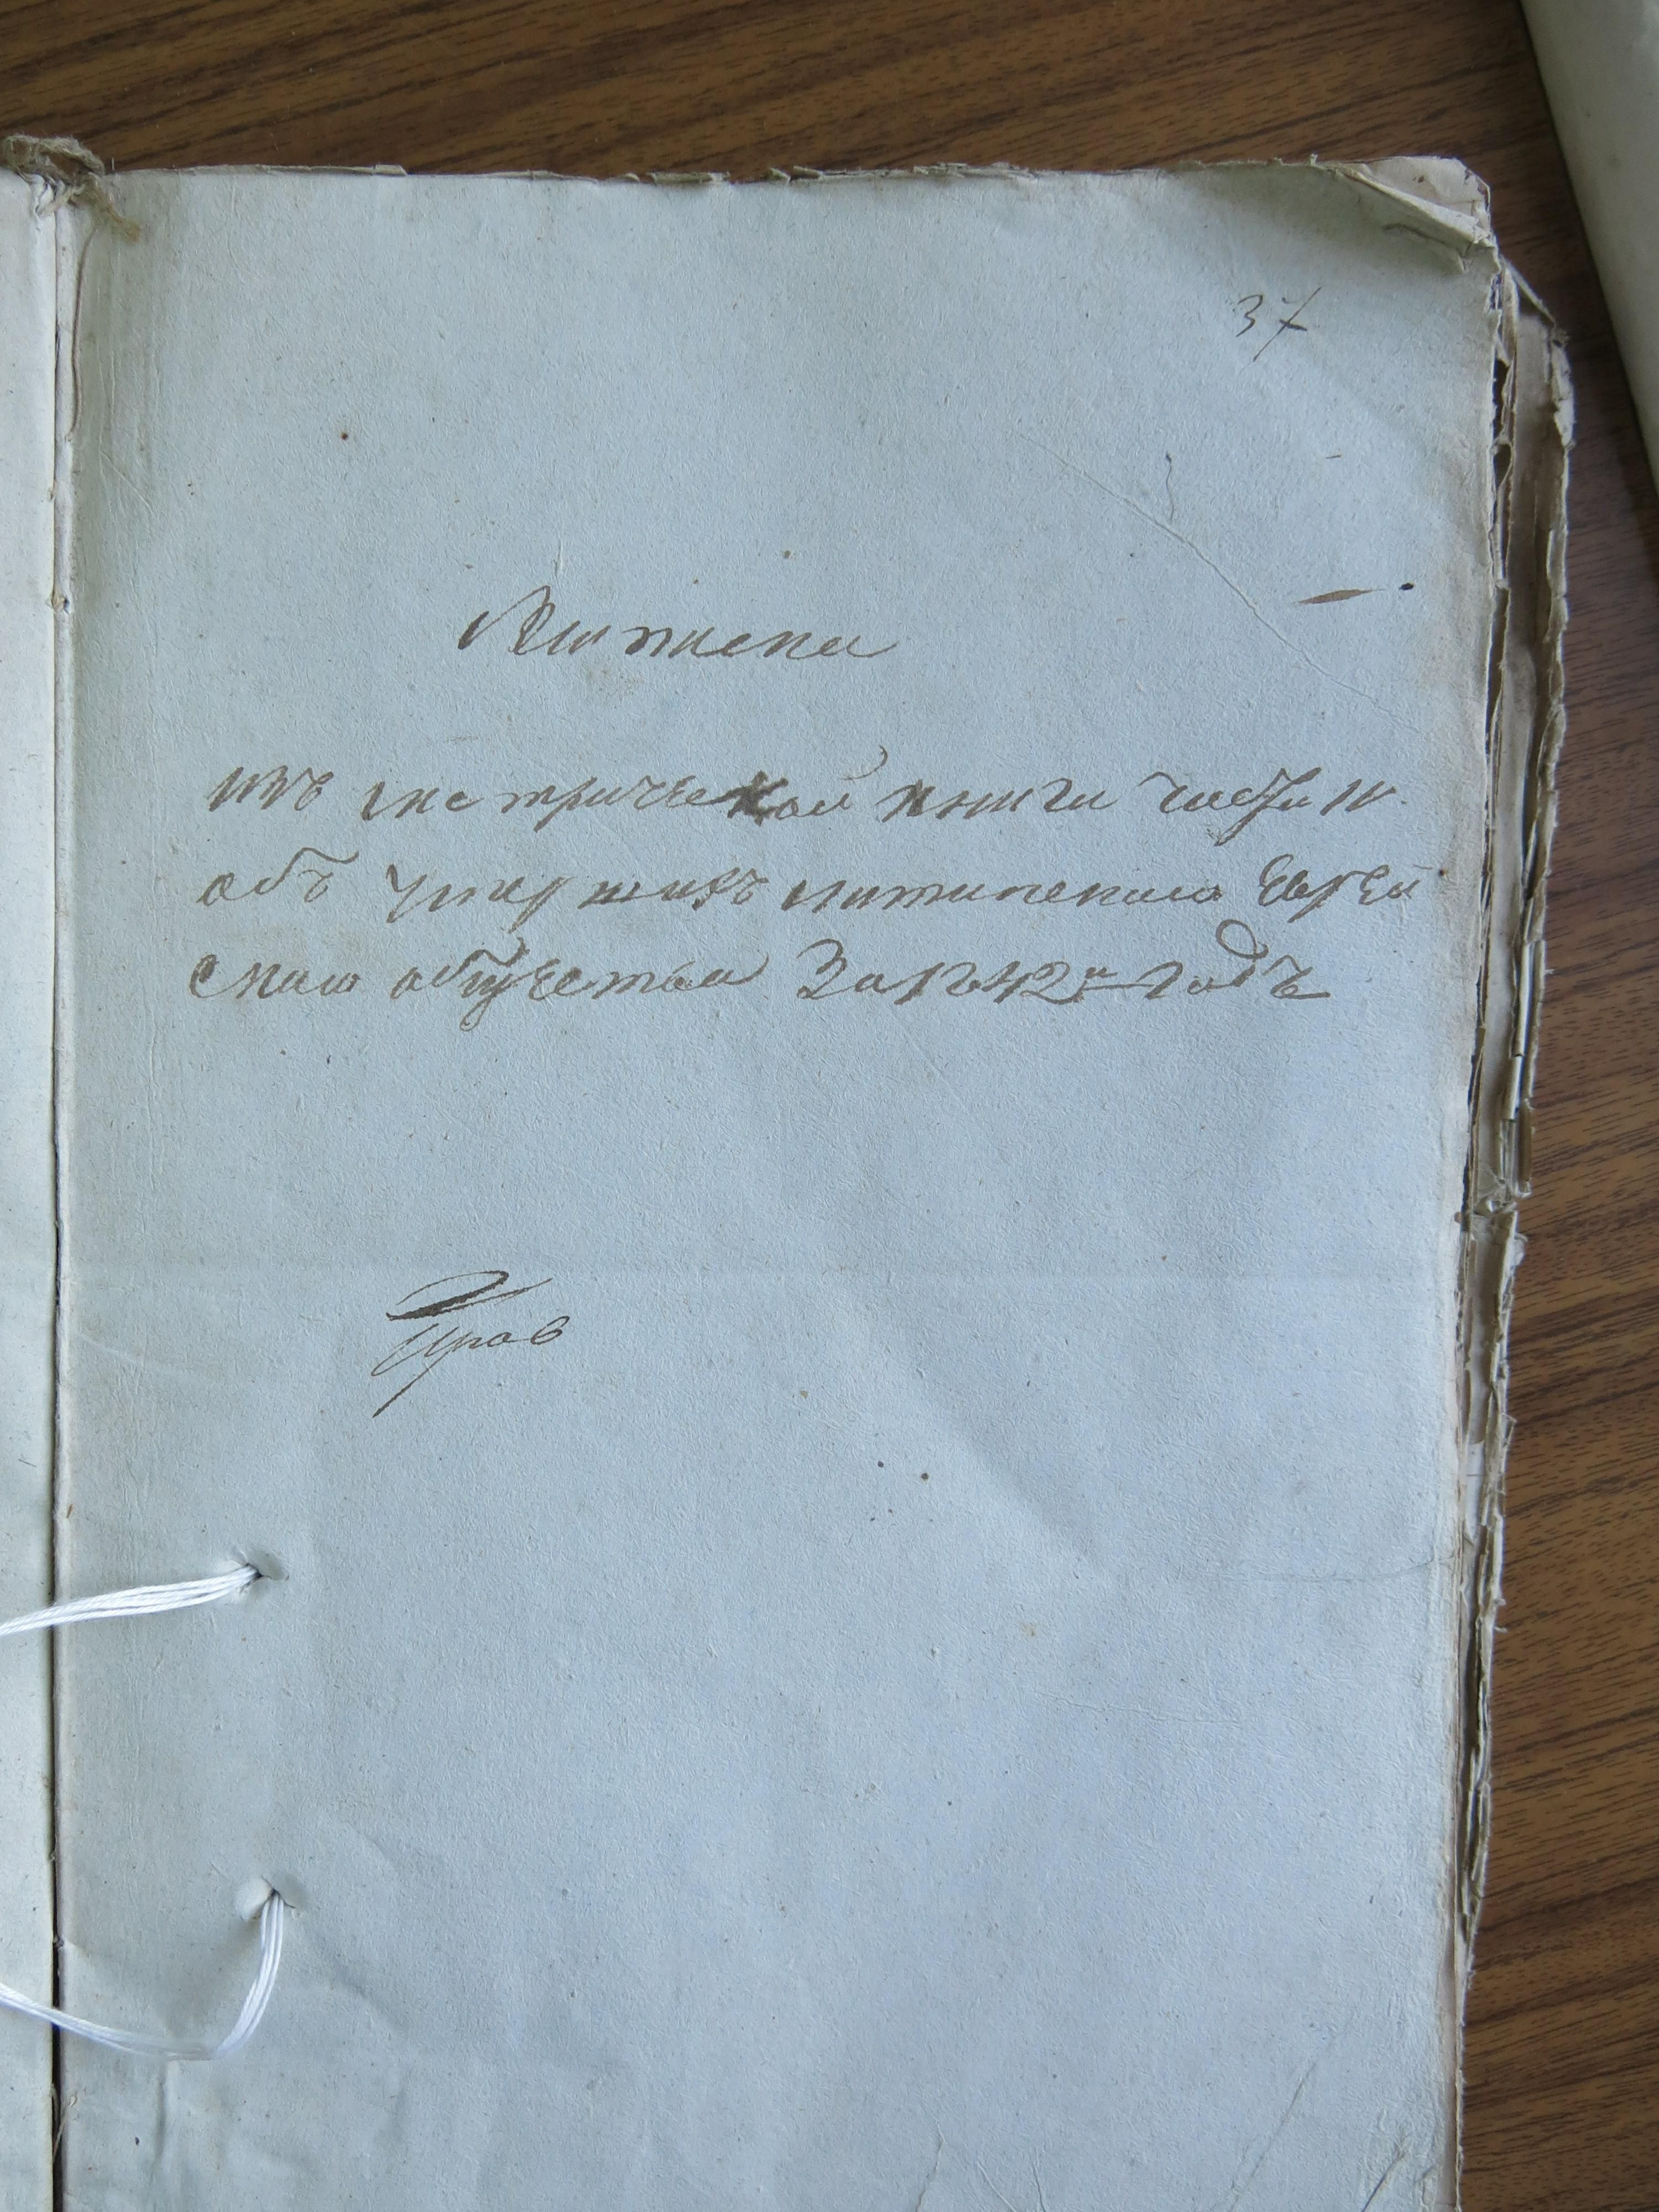 37
Выписка
изъ метрической книги части IV.
объ умершихъ Еврей
скаго общества За 1842й годъ